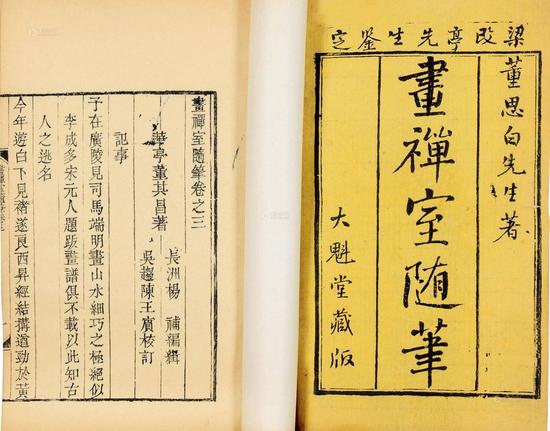 梁改亭先生鑒定
董思白先生著
畫禪室随筆
大魁堂藏版
畫禪室隨筆卷之三
華亭董其昌著
長洲楊 補編輯
吳趨陳王賓校訂
記事
子在廣陵見司馬端明畫山水細巧之極絕似
李成多宋元人題跋畫譜俱不載以此知古
人之逃名
今年遊白下見褚遂良西昇經結搆遒勁於黃